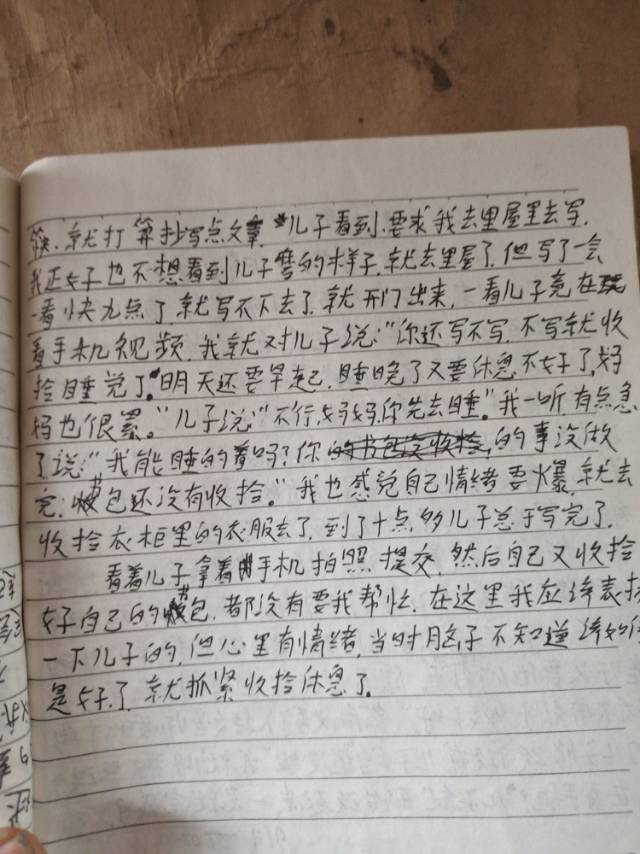 候.就打算抄写点文章.儿子看到.要求我去里屋里去写.
我正好也不想看到儿子的样子.就去里屋了.但写了一会
一看快九点了就写不下去了.就开门出来,一看儿子竟在玩
看手机视频.我就对儿子说:"你还写不写.不写就收
拾睡觉了.明天还要早起.睡晚了又要休息不好了.妈
妈也很累。"儿子说:"不行,妈妈,你先去睡."我一听有点急
了说:"我能睡的着吗?你的书包没收拾,的事没做
完.书包还没有收拾."我也感觉自己情绪要爆.就去
收拾衣柜里的衣服去了.到了十点多儿子总于写完了.
看着儿子拿着手机拍照提交.然后自己又收拾
好自己的书包.都没有要我帮忙.在这里我应该表扬
一下儿子的.但心里有情绪.当时脑子不知道
是好了.就抓紧收拾休息了.